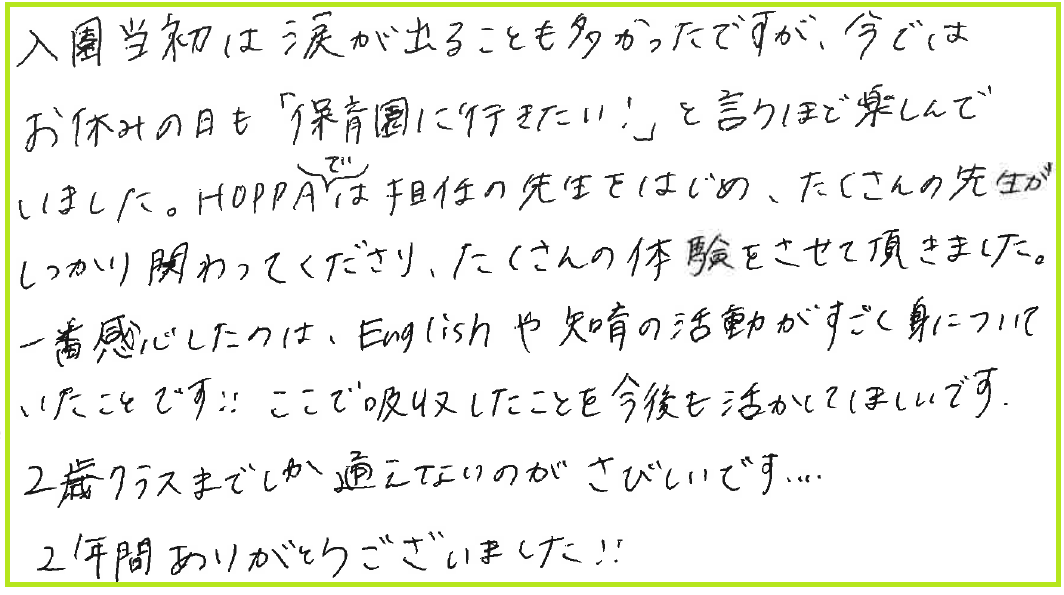 入園当初は涙が出ることも多かったですが、今では
お休みの日も「保育園に行きたい！」と言うほど楽しんで
いました。HOPPAでは担任の先生をはじめ、たくさんの先生が
しっかり関わってくださり、たくさんの体験をさせて頂きました。
一番感心したのは、Englishや知育の活動がすごく身について
いたことです!! ここで吸収したことを今後も活かしてほしいです.
2歳クラスまでしか通えてないのがさびしいです....
2年間ありがとうございました!!